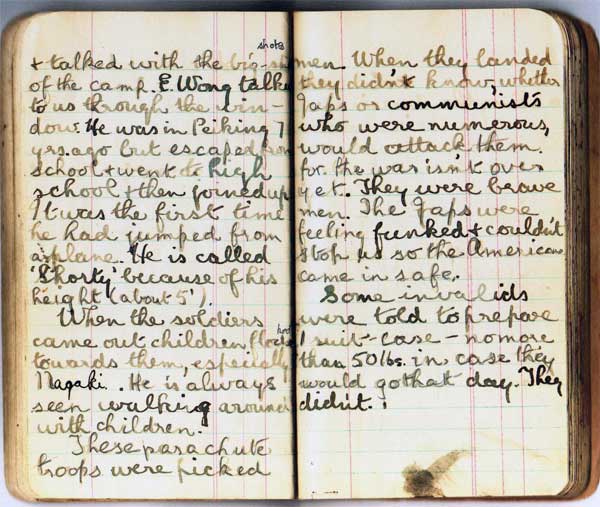 & talked with the big-shots
of the camp. E. Wong talked
to us through the win-
dow. He was in Peiking 7
yrs. ago but escaped from
school & went to high
school & then joined up.
It was the first time
he had jumped from
airplane. He is called
'Shorty' because of his
height (about 5').
When the soldiers
came out children flocked
towards them, especially
Nagaki. He is always
seen walking around
with children.
These parachute
troops were picked
men. When they landed
they didn't know, whether
Japs or communists
who were numerous,
would attack them.
for the war isn't over
yet. They were brave
men. The Japs were
feeling funked & couldn't
stop us so the Americans
came in safe.
Some invalids
were told to prepare
1 suit-case - no more
than 50 lbs. in case they
would go that day. They
didn't.